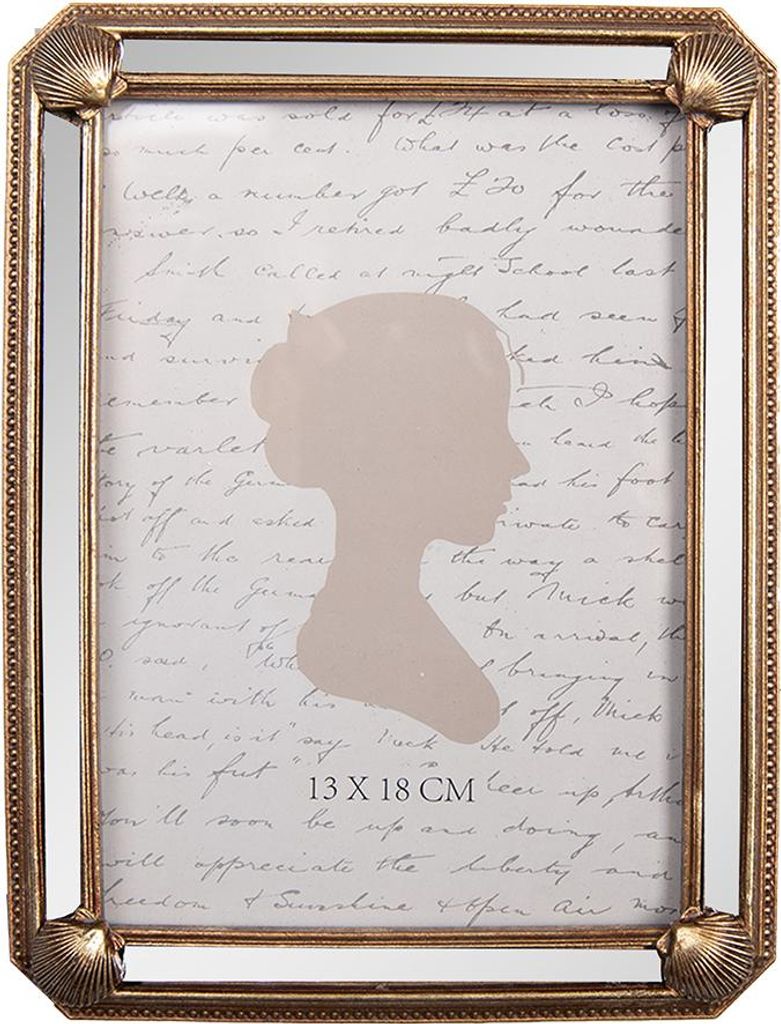 was sold for £24 at a loss of
so much per cent. What was the cost p
Well, a number got £20 for the
answer, so I retired badly wounde
Smith called at night School last
Friday and had seen
nd survi ked him
emember I hop
e varlet heard the
tory of the Gun ad his foot
ot off and asked rivate to car
m to the rear the way a shel
ok off the Gun but Mick w
ignorant of On arrival, th
O. said, "Wh bringing in
man" with his off, Mick
His head, is it" say Mick. He told me
was his feet" heer up, Arthu
You'll soon be up and doing, an
will appreciate the liberty and
freedom & Sunshine & open air mos
13 X 18 CM